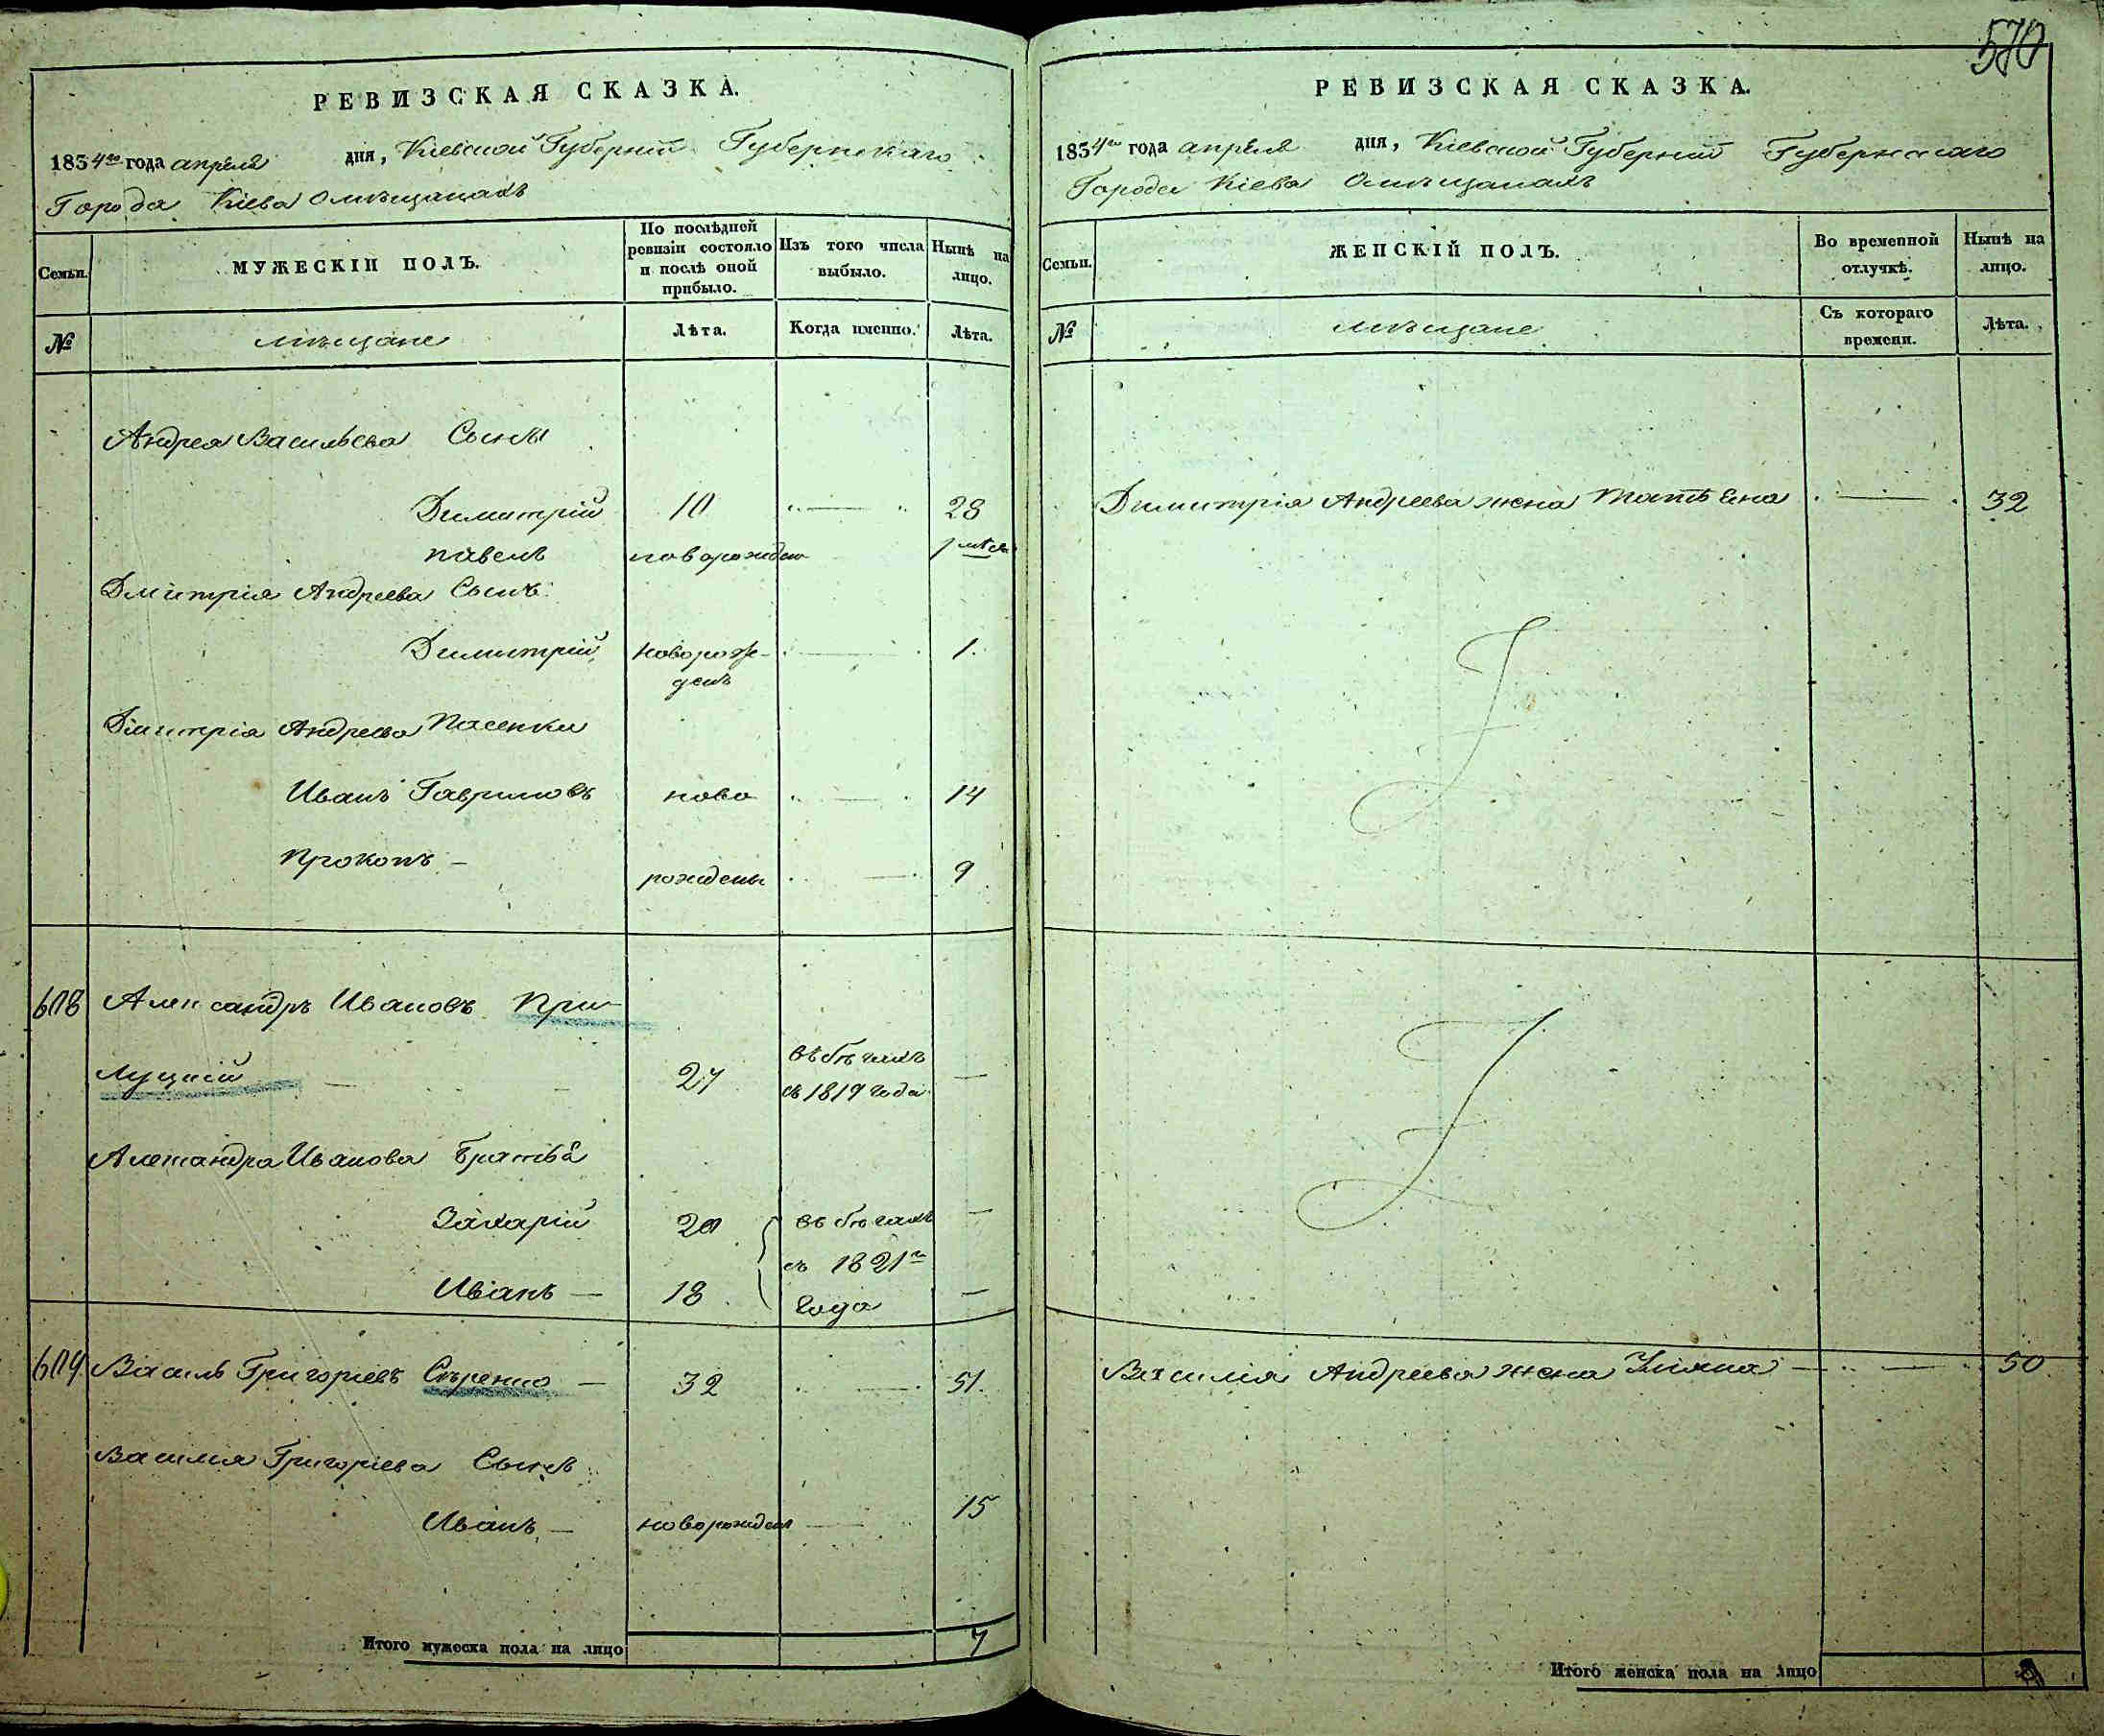 570
РЕВИЗСКАЯ СКАЗКА.
1834го года апреля дня, Кіевской Губерніи Губернскаго
Города Кіева О мѣщанахъ
Семьи.
МУЖЕСКІЙ ПОЛЪ.
По послѣдней ревизіи состояло и послѣ оной прибыло.
Изъ того числа выбыло.
Нынѣ на лицо.
№
мѣщане
Лѣта.
Когда именно.
Лѣта.
Андрея Васильева Сыны
Димитрій 10 28
павелъ новорожден 1 мѣся
Дмитрія Андреева Сынъ
Димитрій новорож- 1.
денъ
Дмитрія Андреева Пасенки
Иванъ Гавриловъ ново 14
Прокопъ — рождены 9
608 Александръ Ивановъ При-
луцкій 27 въ бѣгахъ —
съ 1819 года
Александра Иванова Братья
Захарій 20 въ бѣгахъ —
съ 1821го
Иванъ — 18 года —
609 Василь Григорьевъ Сѣренко — 32 51.
Василія Григорьева Сынъ
Иванъ — новорожден 15
Итого мужеска пола на лицо 7
РЕВИЗСКАЯ СКАЗКА.
1834го года апреля дня, Кіевской Губерніи Губернскаго
Города Кіева О мѣщанахъ
Семьи.
ЖЕНСКІЙ ПОЛЪ.
Во временной отлучкѣ.
Нынѣ на лицо.
№
мѣщане
Съ котораго времени.
Лѣта.
Димитрія Андреева жена Татьяна 32
Василія Андреева жена Уліяна — 50
Итого женска пола на лицо